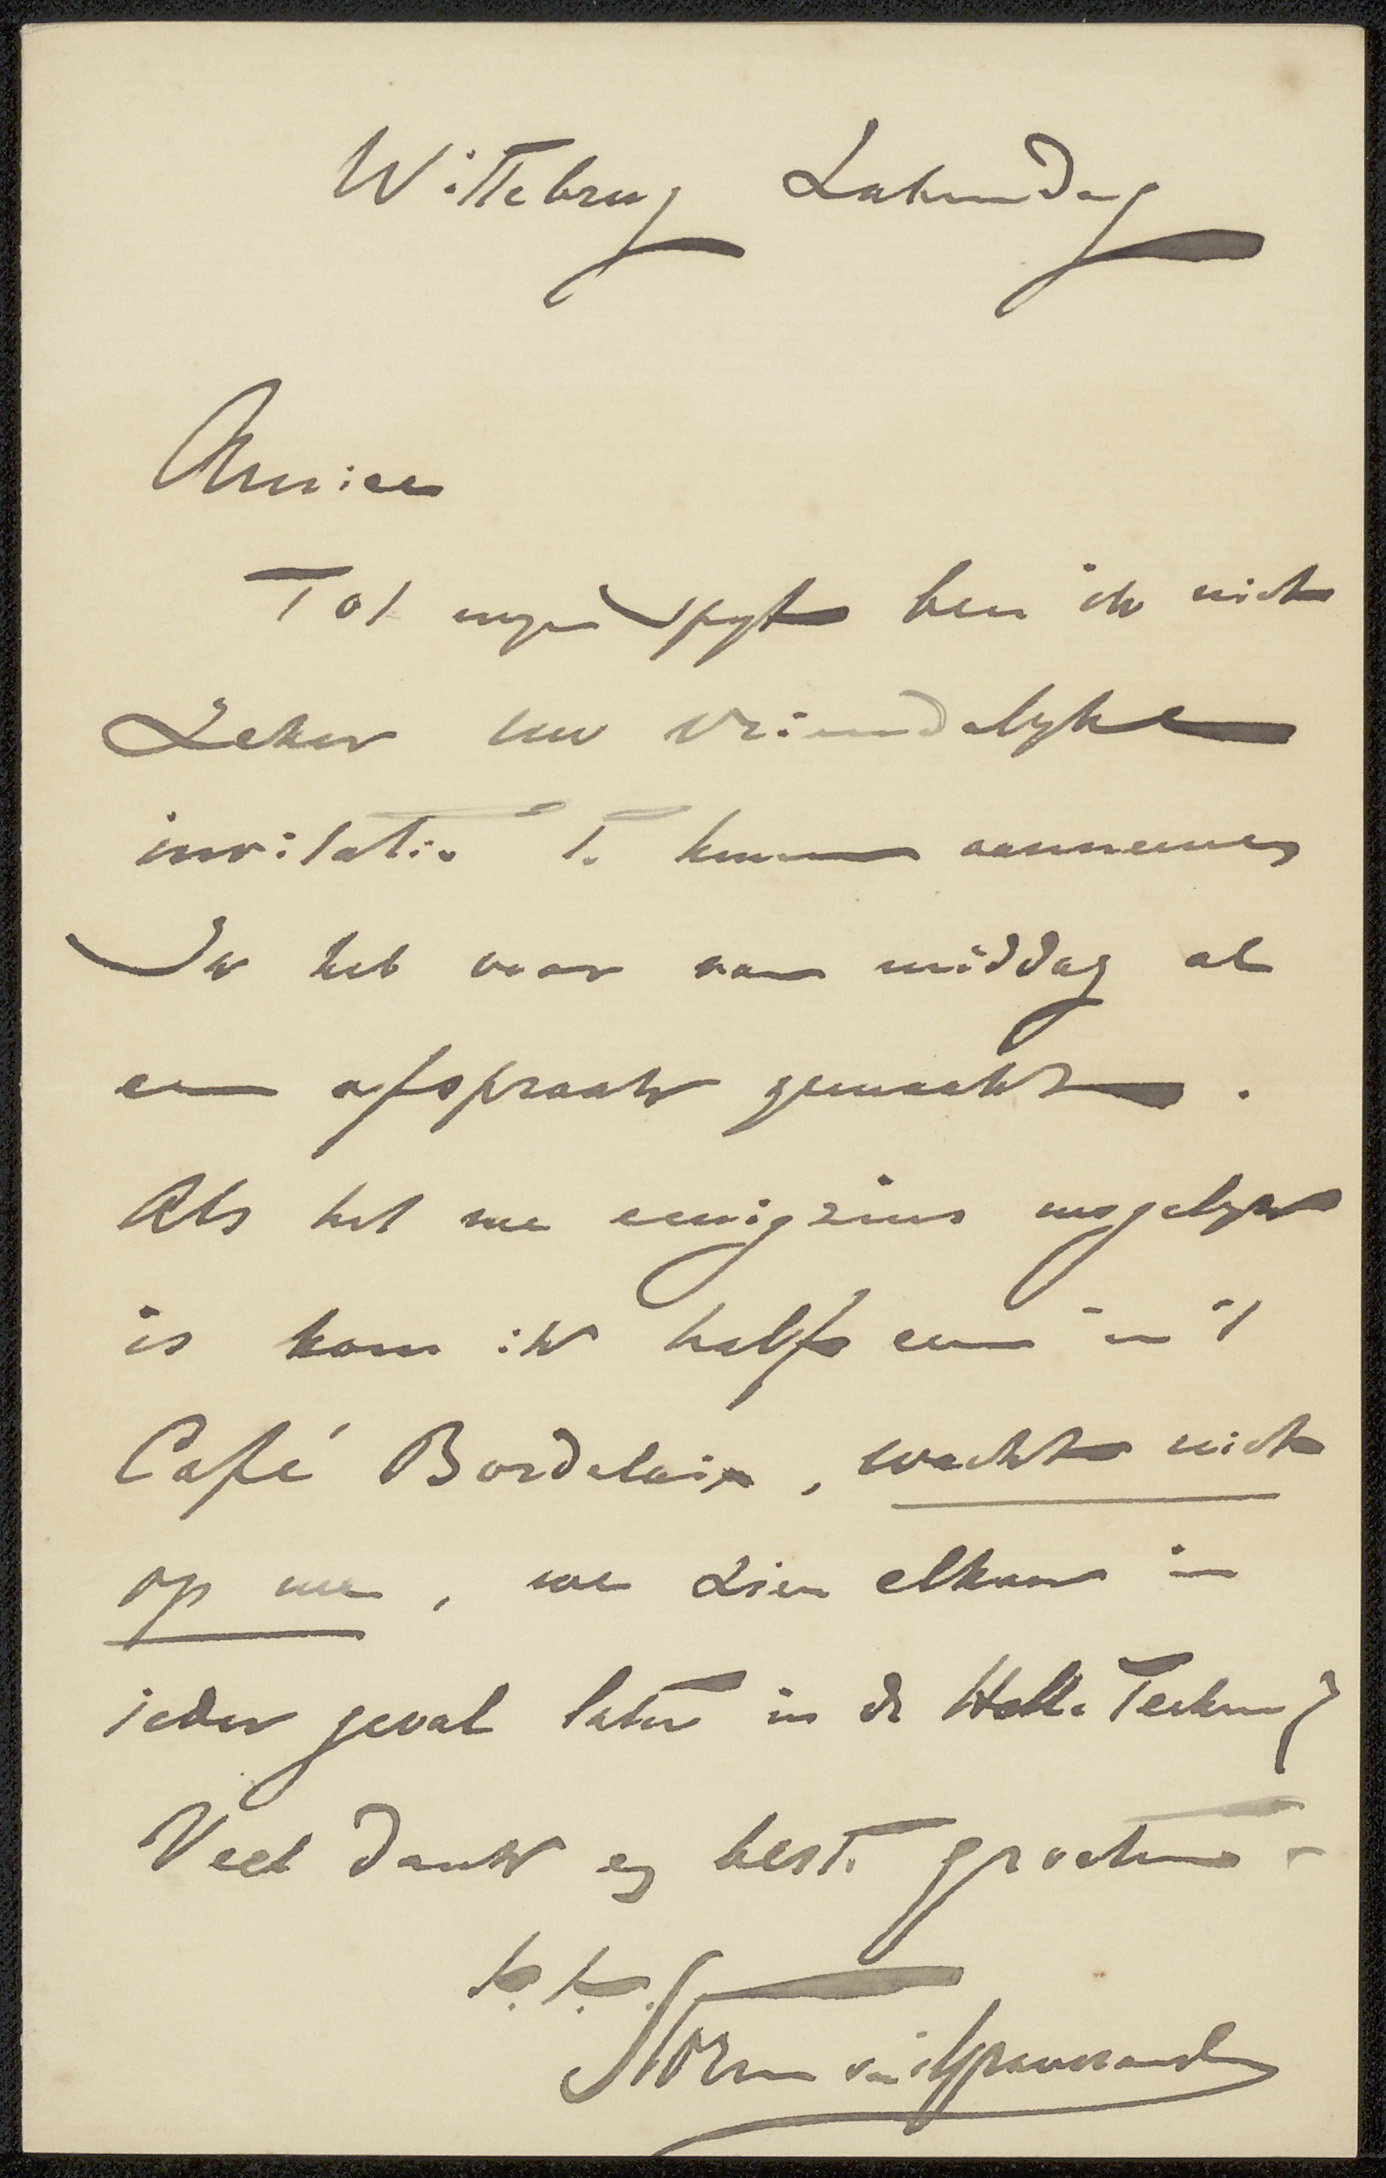 Wittebrug Zaterdag
Amice
Tot myn spyt ben ik niet
zeker uw vriendelyke
invitatie te kunnen aannemen
Ik heb voor van middag al
een afspraak gemaakt.
Als het me eenigzins mogelyk
is kom ik half een in 't
Café Bordelaix, wacht niet
op me, we zien elkaar in
ieder geval later in de Holl. Teeken
Veel dank en beste groeten -
t.t.
Storm van 'sGravesande